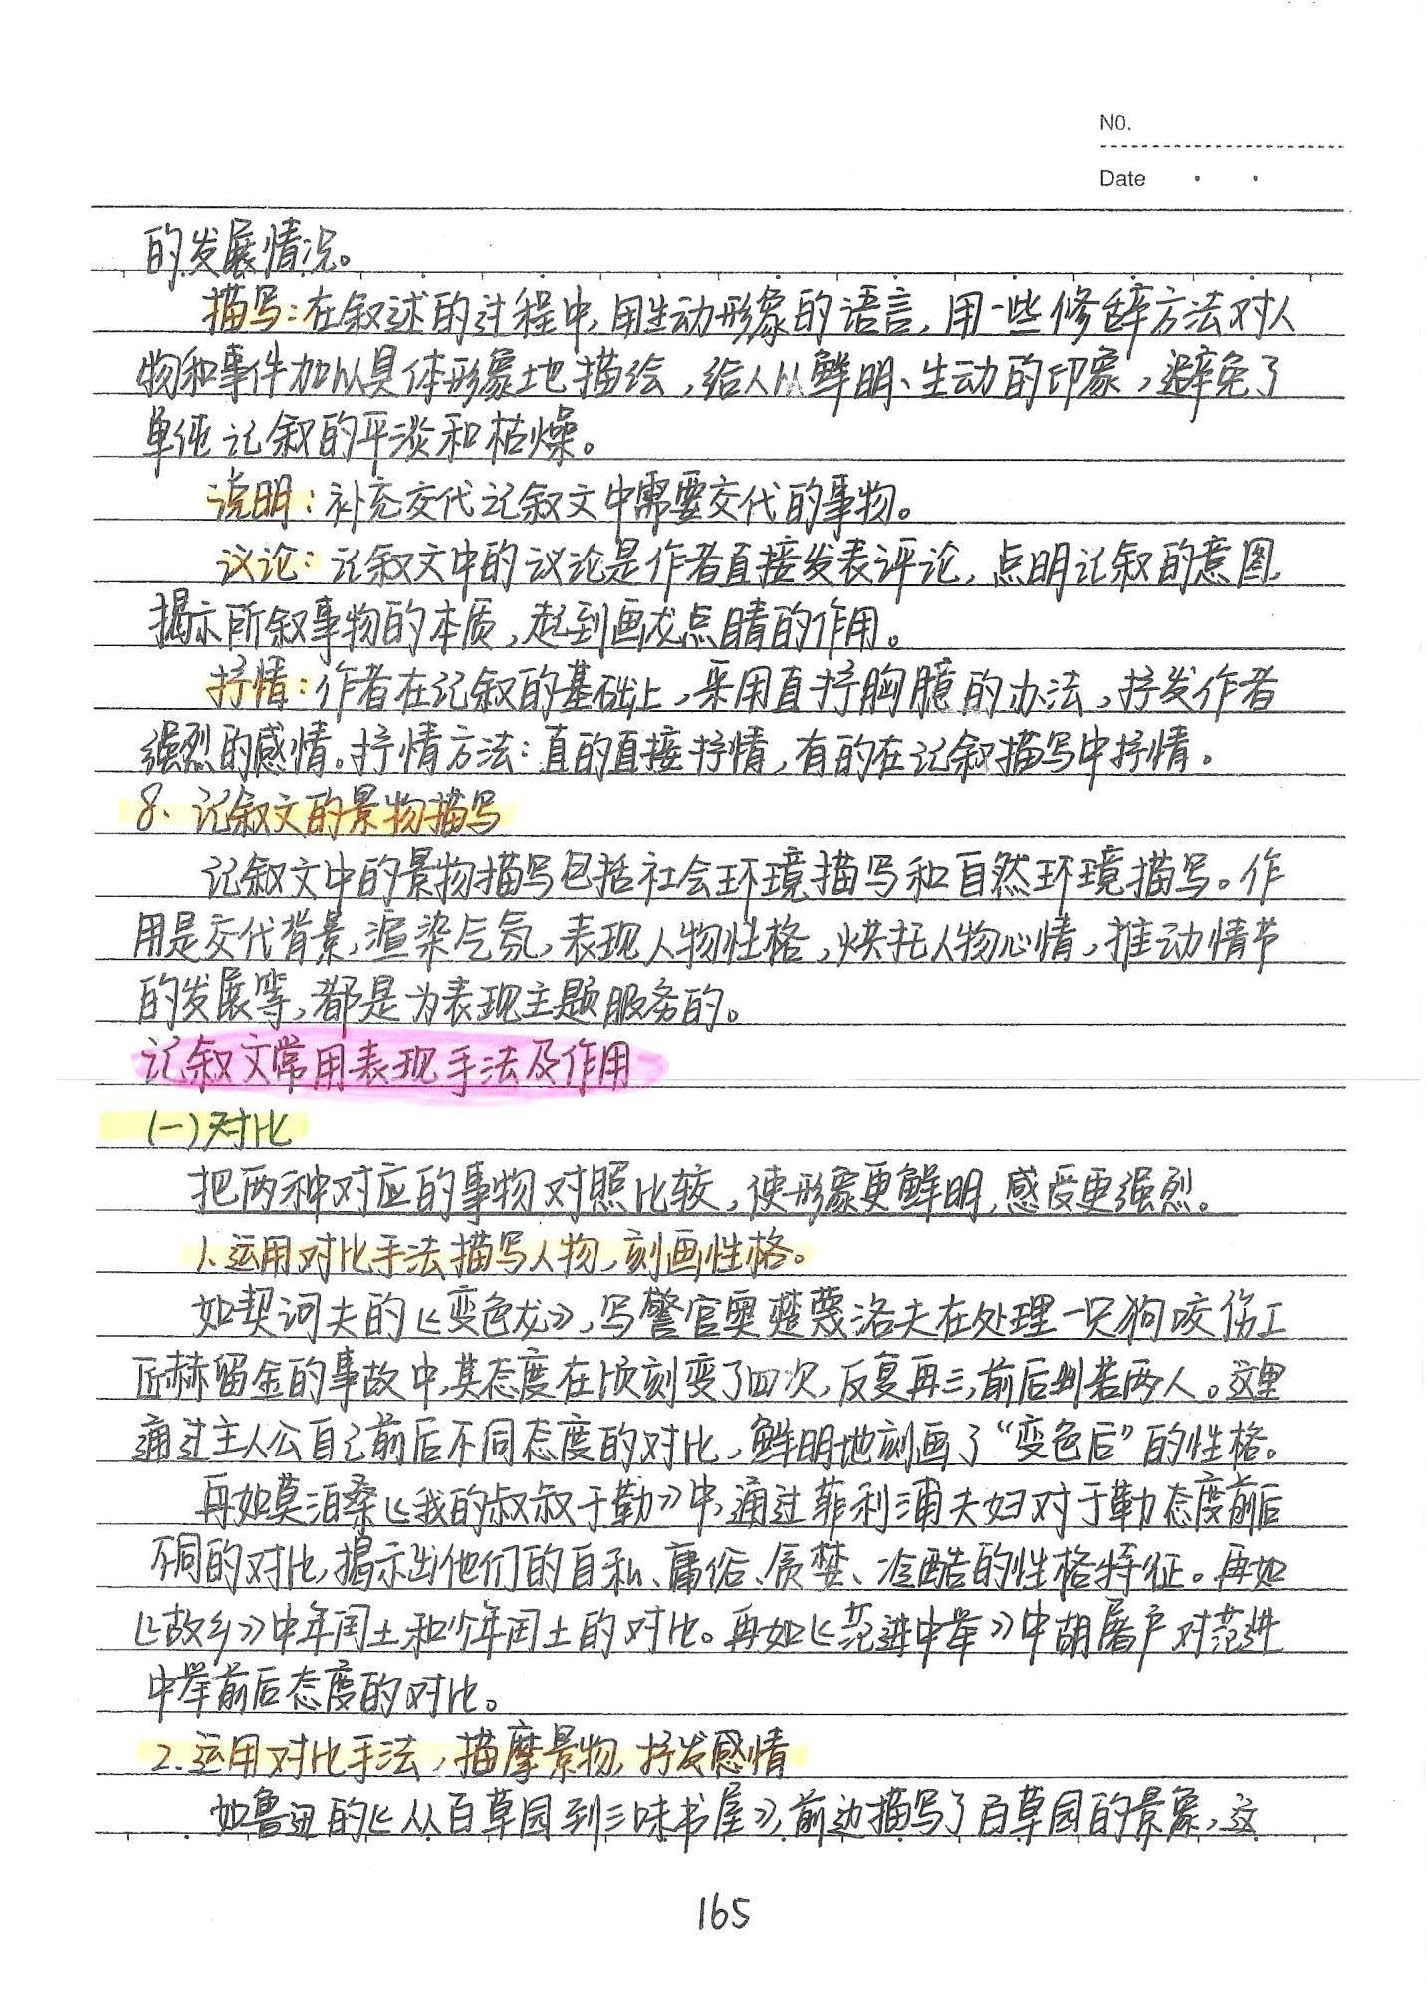 NO.
Date
的发展情况。
描写:在叙述的过程中,用生动形象的语言,用一些修辞方法对人
物和事件加以具体形象地描绘,给人以鲜明、生动的印象,避免了
单纯记叙的平淡和枯燥。
说明:补充交代记叙文中需要交代的事物。
议论:记叙文中的议论是作者直接发表评论,点明记叙的意图,
揭示所叙事物的本质,起到画龙点睛的作用。
抒情:作者在记叙的基础上,采用直抒胸臆的办法,抒发作者
强烈的感情。抒情方法:直的直接抒情,有的在记叙描写中抒情。
8、记叙文的景物描写
记叙文中的景物描写包括社会环境描写和自然环境描写。作
用是交代背景,渲染气氛,表现人物性格,烘托人物心情,推动情节
的发展等,都是为表现主题服务的。
记叙文常用表现手法及作用
(一)对比
把两种对应的事物对照比较,使形象更鲜明,感受更强烈。
1、运用对比手法描写人物,刻画性格。
如契诃夫的《变色龙》,写警官奥楚蔑洛夫在处理一只狗咬伤工
匠赫留金的事故中,其态度在顷刻变了四次,反复再三,前后判若两人。这里
通过主人公自己前后不同态度的对比,鲜明地刻画了“变色后”的性格。
再如莫泊桑《我的叔叔于勒》中,通过菲利浦夫妇对于勒态度前后
不同的对比,揭示出他们的自私、庸俗、贪婪、冷酷的性格特征。再如
《故乡》中年闰土和少年闰土的对比。再如《范进中举》中胡屠户对范进
中举前后态度的对比。
2.运用对比手法,描摩景物,抒发感情
如鲁迅的《从百草园到三味书屋》,前边描写了百草园的景象,这
165